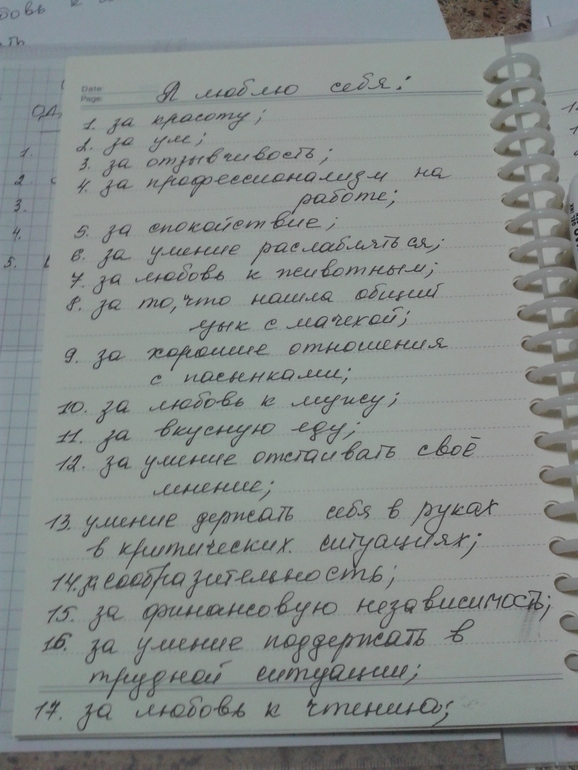 Date:
Page:
Я люблю себя:
1. за красоту;
2. за ум;
3. за отзывчивость;
4. за профессионализм на
работе;
5. за спокойствие;
6. за умение расслабляться;
7. за любовь к животным;
8. за то, что нашла общий
язык с мачехой;
9. за хорошие отношения
с пасынками;
10. за любовь к мужу;
11. за вкусную еду;
12. за умение отстаивать своё
мнение;
13. умение держать себя в руках
в критических ситуациях;
14. за сообразительность;
15. за финансовую независимость;
16. за умение поддержать в
трудной ситуации;
17. за любовь к чтению;
1.
2.
3.
4.
5.